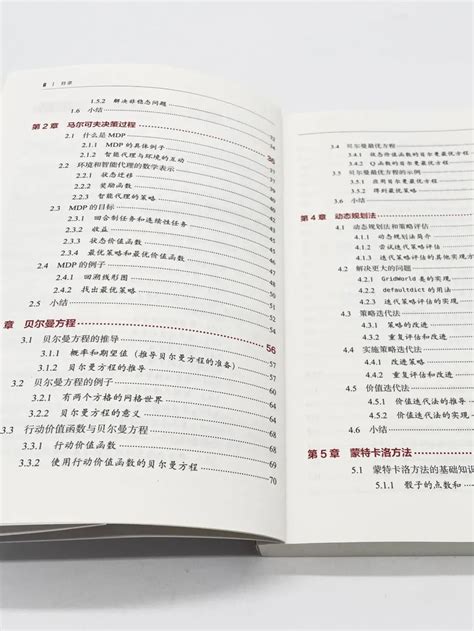 目录
1.5.2 解决非稳态问题
1.6 小结
第 2 章 马尔可夫决策过程 36
2.1 什么是 MDP
2.1.1 MDP 的具体例子
2.1.2 智能代理与环境的互动
2.2 环境和智能代理的数学表示
2.2.1 状态迁移
2.2.2 奖励函数
2.2.3 智能代理的策略
2.3 MDP 的目标
2.3.1 回合制任务和连续性任务
2.3.2 收益
2.3.3 状态价值函数
2.3.4 最优策略和最优价值函数
2.4 MDP 的例子
2.4.1 回溯线形图
2.4.2 找出最优策略
2.5 小结
章 贝尔曼方程 56
3.1 贝尔曼方程的推导 57
3.1.1 概率和期望值（推导贝尔曼方程的准备） 57
3.1.2 贝尔曼方程的推导
3.2 贝尔曼方程的例子
3.2.1 有两个方格的网格世界
3.2.2 贝尔曼方程的意义
3.3 行动价值函数与贝尔曼方程
3.3.1 行动价值函数 68
3.3.2 使用行动价值函数的贝尔曼方程 69
70
3.4 贝尔曼最优方程
3.4.1 状态价值函数的贝尔曼最优方程
3.4.2 Q 函数的贝尔曼最优方程
3.5 贝尔曼最优方程的示例
3.5.1 应用贝尔曼最优方程
3.5.2 得到最优策略
3.6 小结
第 4 章 动态规划法
4.1 动态规划法和策略评估
4.1.1 动态规划法简介
4.1.2 尝试迭代策略评估
4.1.3 迭代策略评估的其他实现方
4.2 解决更大的问题
4.2.1 GridWorld 类的实现
4.2.2 defaultdict 的用法
4.2.3 迭代策略评估的实现
4.3 策略迭代法
4.3.1 策略的改进
4.3.2 重复评估和改进
4.4 实施策略迭代法
4.4.1 改进策略
4.4.2 重复评估和改进
4.5 价值迭代法
4.5.1 价值迭代法的推导
4.5.2 价值迭代法的实现
4.6 小结
第 5 章 蒙特卡洛方法
5.1 蒙特卡洛方法的基础知识
5.1.1 骰子的点数和